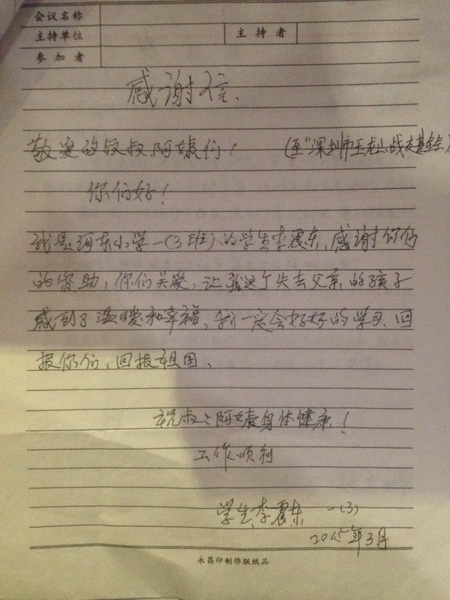 会议名称
主持单位 主持者
参加者
感谢信.
敬爱的叔叔阿姨们! (至"深圳市
你们好!
我是河东小学一(3班)的学生李震东,感谢你们
的资助,你们关爱,让我这个失去父亲的孩子
感到了温暖和幸福,我一定会好好的学习、回
报你们,回报祖国.
祝叔叔阿姨身体健康!
工作顺利
学生李震东 一(3)
2015年3月
永昌印制侨联纸品